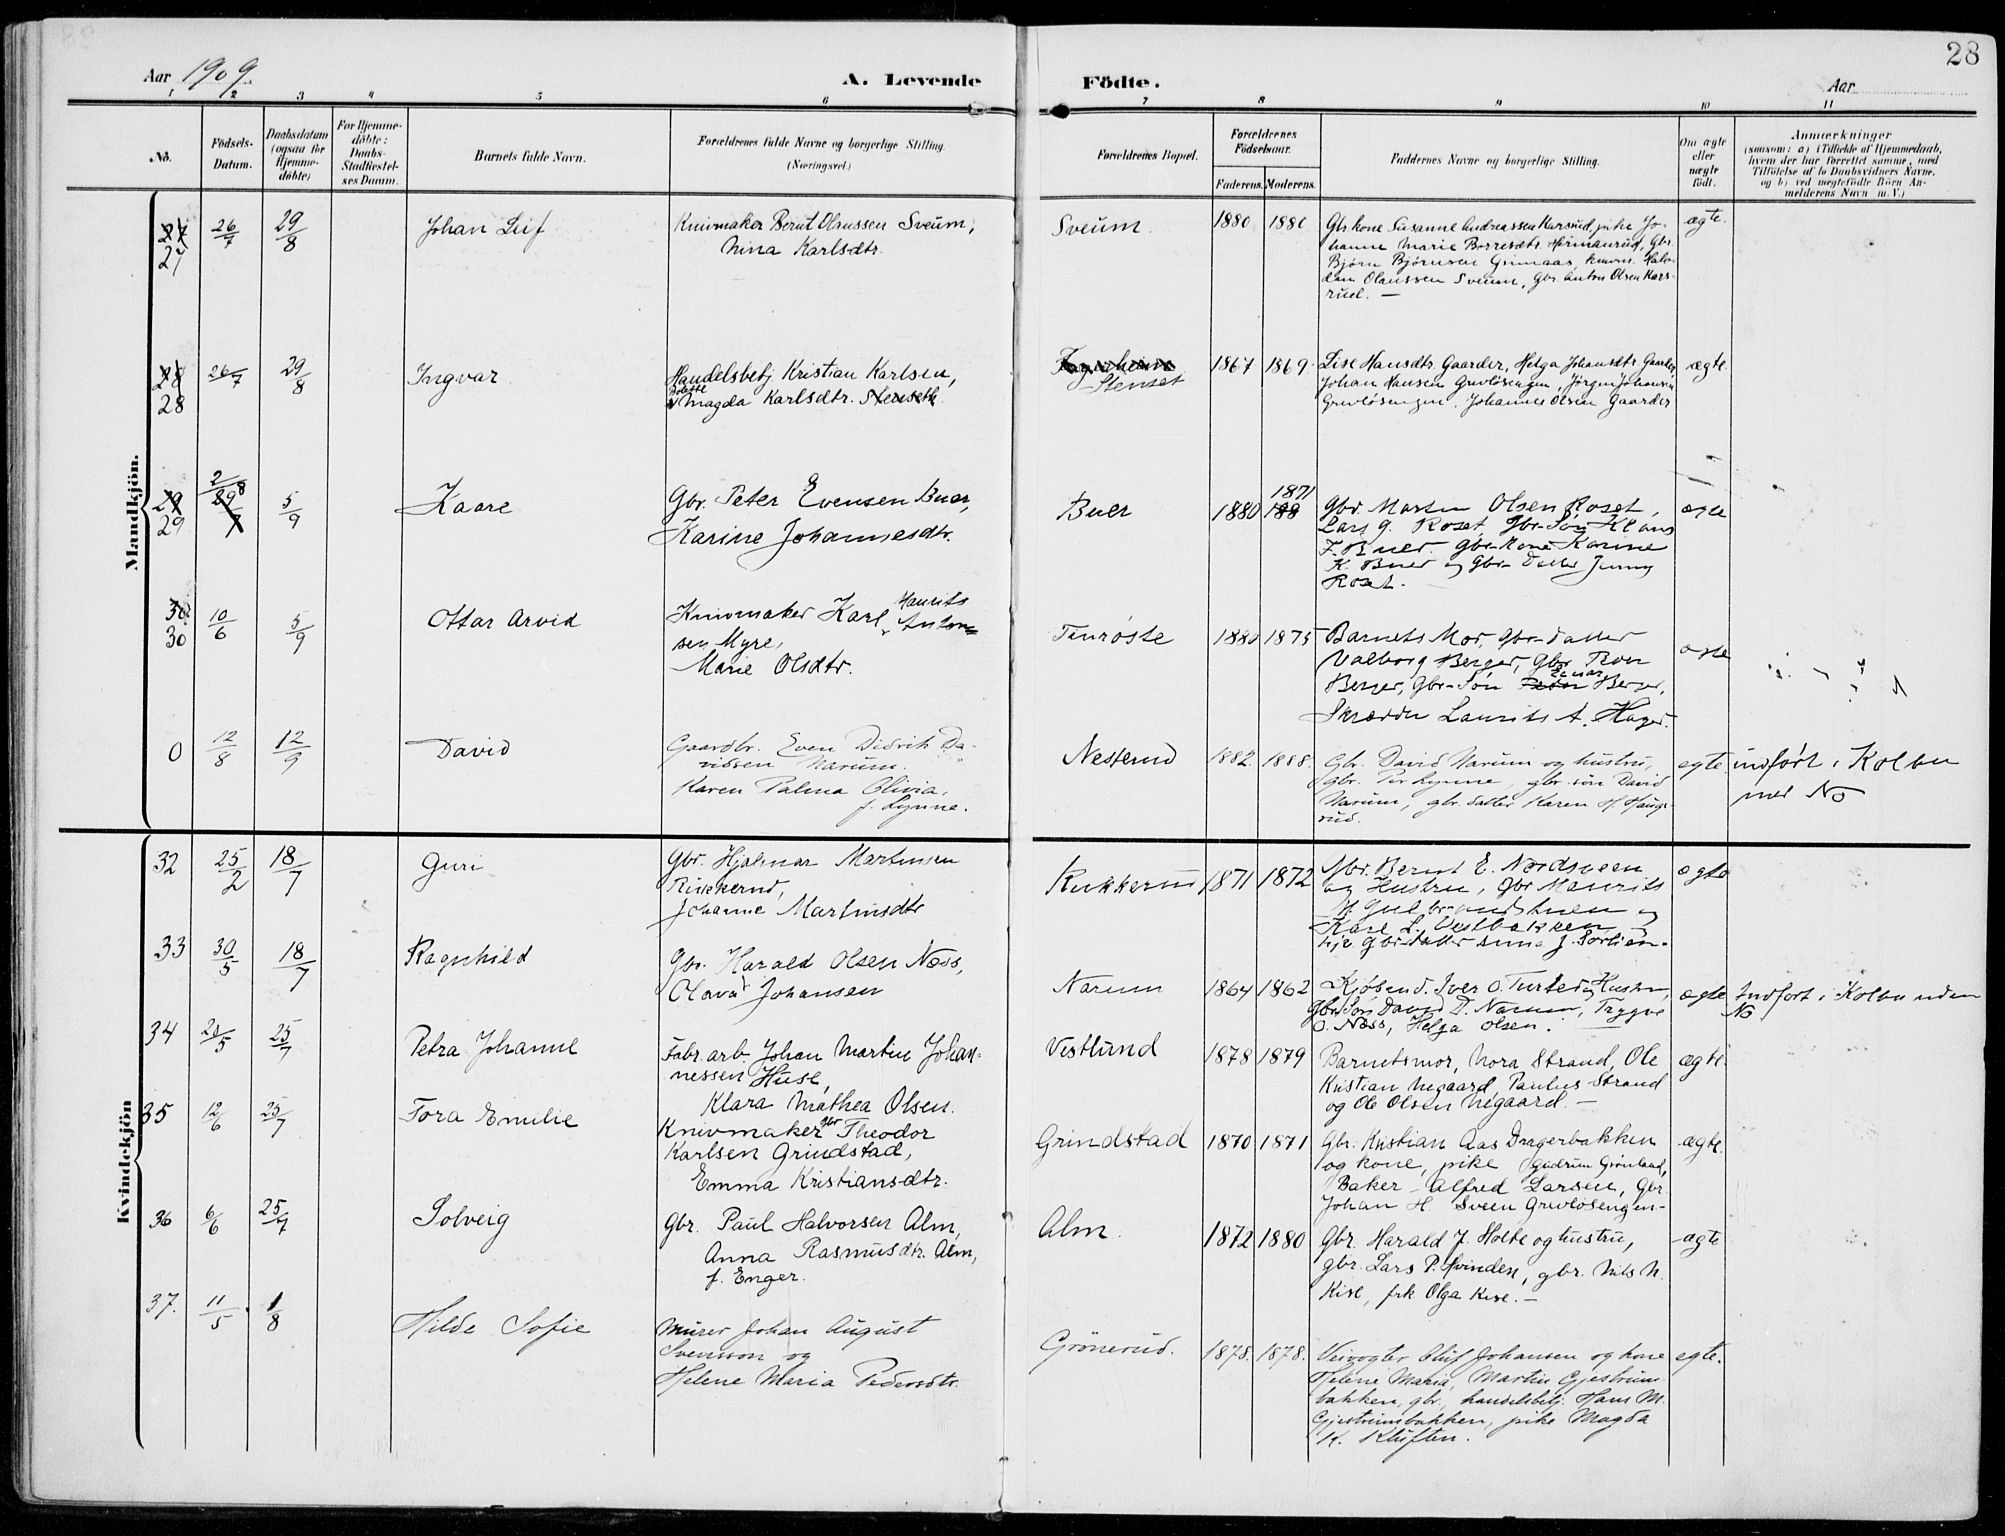 28
Aar 1909
A. Levende
Födte.
Aar
1 2 3 4 5 6 7 8 9 10 11
No.
Födsels-
Datum.
Daabsdatum
(ogsaa för
Hjemme-
döbte)
For Hjemme-
döbte:
Daabs-
Stadfæstel-
ses Datum.
Barnets fulde Navn.
Forældrenes fulde Navne og borgerlige Stilling.
(Næringsvei.)
Forældrenes Bopæl.
Forældrenes
Födselsaar.
Faderens. Moderens.
Faddernes Navne og borgerlige Stilling.
Om ægte
eller
uægte
födt.
Anmærkninger
(saasom: a) i Tilfælde af Hjemmedaab,
hvem der har forrettet samme, med
Tilföielse af to Daabsvidners Navne,
og b) ved uægtefödte Börn An-
melderens Navn m. V.)
Mandkjön.
27
27
26/7
29/8
Johan Leif
Knivmaker Bernt Olaussen Sveum,
Nina Karlsdtr.
Sveum.
1880
1880
Gbr kone Susanne Andreassen Karsrud, pike Jo-
hanne Marie Borresdtr. Hermanrud, Gbr.
Bjørn Bjørnsen Grimaas, knivm. Halv-
dan Olaussen Sveum, Gbr. Anton Olsen Kars-
rud. —
ægte.
28
28
26/7
29/8
Ingvar
Handelsbetj Kristian Karlsen,
Bolette
Magda Karlsdtr. Stenseth.
Stenset
1867
1869.
Lise Hansdtr. Gaarder, Helga Johansdtr. Gaarder,
Johan Hansen Grevløsengen, Jørgen Johansen
Grevløsengen, Johannes Olsen Gaarder
ægte.
29
29
2/8
29/7
5/9
Kaare
Gbr. Peter Evensen Buer,
Karine Johannesdtr.
Buer
1880
1871
188
Gbr. Martin Olsen Roset,
Lars G. Roset, Gbr-Søn Klaus
F. Buer. Gbr-kone Karine
K. Buer og Gbr-datter Jenny
Roset.
ægte
30
30
10/6
5/9
Ottar Arvid
Knivmaker Karl Maurits Anton
sen Myre,
Marie Olsdtr.
Finröste
1880
1875
Barnets Mor, Gbr-datter
Valborg Berger, Gbr. Even
Berger, Gbr-Søn Einar Berger,
Skrædder Laurits A. Hager.
ægte
0
12/8
12/9
David
Gaardbr. Even Didrik Da-
vidsen Narum.
Karen Palma Olivia,
f. Lynne.
Nesterud
1882.
1888.
Gbr. David Narum og hustru,
gbr. Per Lynne, gbr. søn David
Narum, gbr. datter Karen H. Haugs-
rud.
egte.
indført i Kolbu
med No
Kvindekjön
32
25/2
18/7
Guri
Gbr. Hjalmar Martinsen
Rukkerud,
Johanne Martinsdtr
Rukkerud
1871
1872
Gbr. Bernt E. Nordsveen
og Hustru, Gbr Maurits
M. Gulbrandshuen og
Karl L. Vestbakken
ægte
33
30/5
18/7
Ragnhild
Gbr. Harald Olsen Næss,
Olava Johansen
Narum
1864
1862
Kjøbmd. Iver O. Turterø Hustru,
Gbr Søn David D. Narum, Trygve
O. Næss, Helga Olsen.
ægte
Indført i Kolbu uden
No
34
23/5
25/7
Petra Johanne
Fabr. arb. Johan Martin Johan-
nessen Huse,
Klara Mathea Olsen.
Vestlund
1878
1879
Barnetsmor, Nora Strand, Ole
Kristian Negaard, Paulus Strand
og Ole Olsen Negaard. —
ægte.
35
12/6
25/7
Tora Emilie
Knivmaker gbr Theodor
Karlsen Grindstad,
Emma Kristiansdtr.
Grindstad
1870
1871
Gbr. Kristian Aas Dragerbakken
og kone, pike Gudrun Grønland,
Baker - Alfred Larsen, Gbr.
Johan H. Sveen Grevløsengen-
ægte.
36
6/6
25/7
Solveig
Gbr. Paul Halvorsen Alm,
Anna Rasmusdtr. Alm,
f. Enger.
Alm.
1872
1880
Gbr. Harald J. Holte og hustru,
gbr. Lars P. Kvinden, gbr. Nils N.
Kise, frk Olga Kise. —
ægte
37.
11/5
1/8
Hilde Sofie
Murer Johan August
Svensson og
Helene Maria Pedersdtr.
Grönerud.
1878.
1878.
Veivogter Oluf Johansen og kone
Helene Maria, Martin Gjestrum-
bakken, gbr, handelsbetj. Hans M.
Gjestrumsbakken, pike Magda
K. Kluften.
egte.